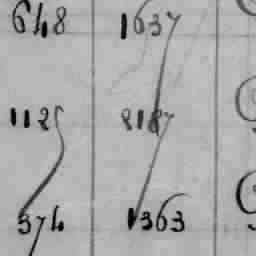 648 1637
1125 8187
374 1363